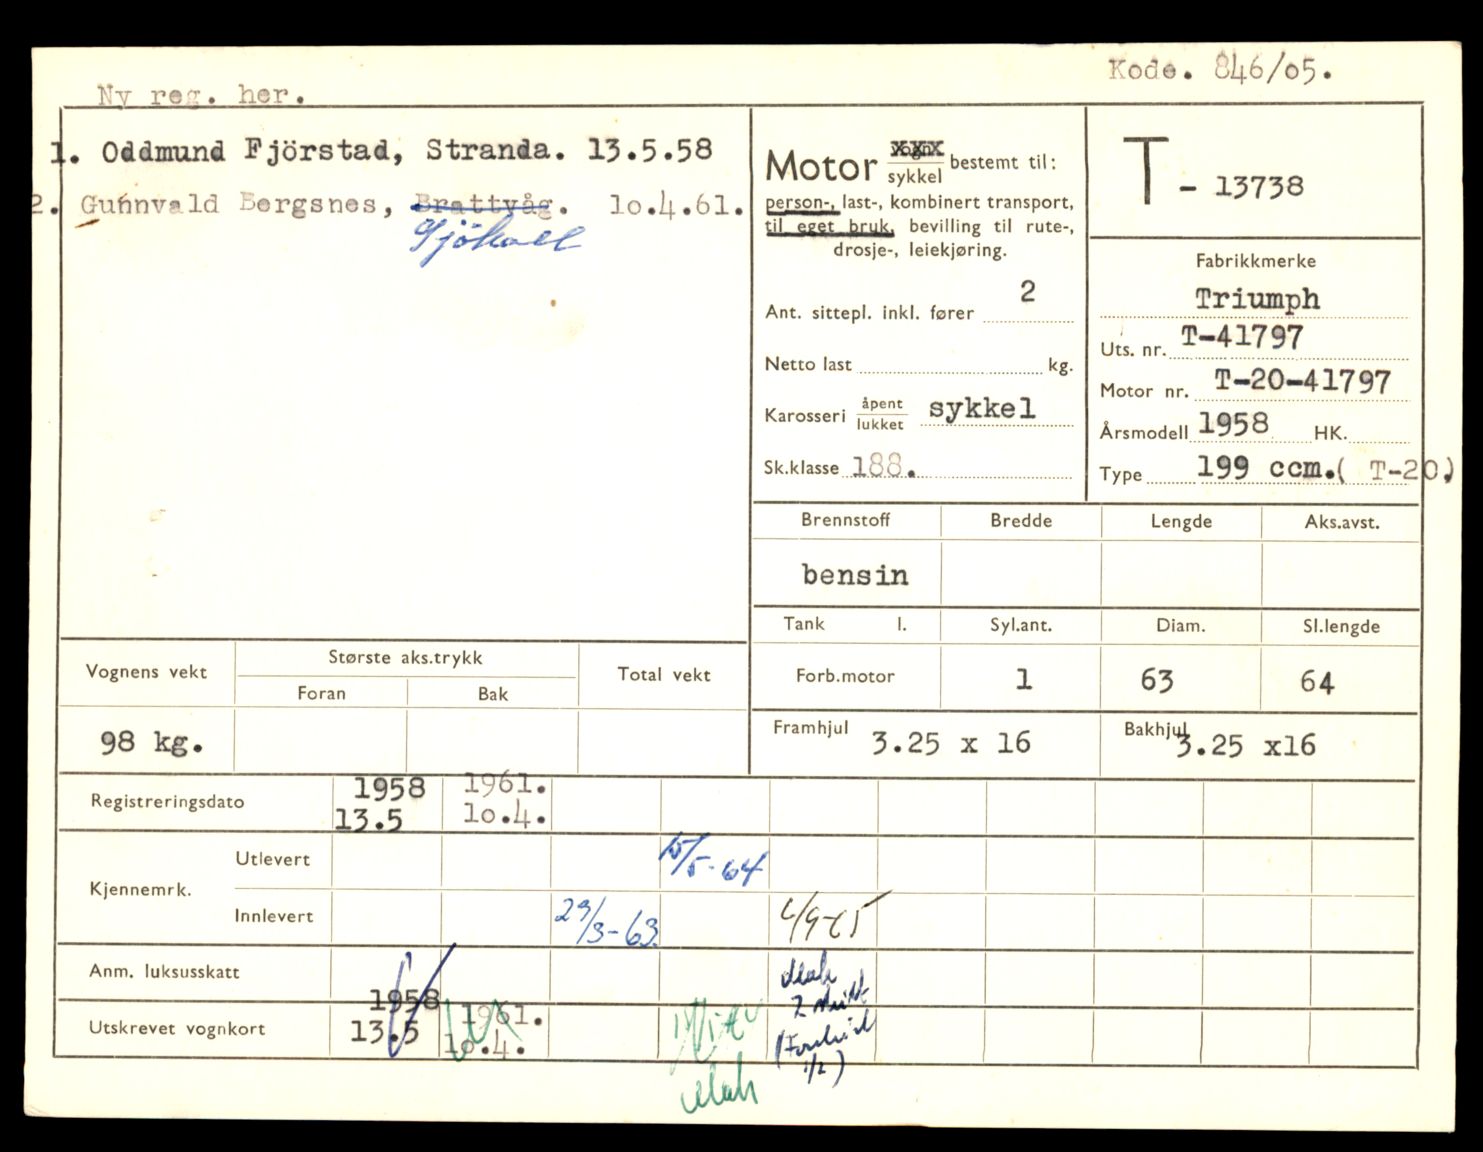 Kode. 846/o5.
Ny reg. her.
1. Oddmund Fjörstad, Stranda. 13.5.58
2. Gunnvald Bergsnes, Brattvåg. lo.4.61.
Sjöholt
Motor vogn xxx sykkel bestemt til:
person-, last-, kombinert transport,
til eget bruk, bevilling til rute-,
drosje-, leiekjøring.
Ant. sittepl. inkl. fører 2
Netto last kg.
Karosseri åpent lukket sykkel
Sk.klasse 188.
T - 13738
Fabrikkmerke
Triumph
Uts. nr. T-41797
Motor nr. T-20-41797
Årsmodell 1958 HK.
Type 199 ccm.( T-20)
Brennstoff Bredde Lengde Aks.avst.
bensin
Tank l. Syl.ant. Diam. Sl.lengde
Forb.motor 1 63 64
Framhjul 3.25 x 16 Bakhjul 3.25 x16
Vognens vekt Største aks.trykk Total vekt
Foran Bak
98 kg.
Registreringsdato 1958 13.5 1961. lo.4.
Kjennemrk.
Utlevert 15/5-64
Innlevert 29/3-63
Anm. luksusskatt
Utskrevet vognkort 1958 13.5 1961. lo.4.